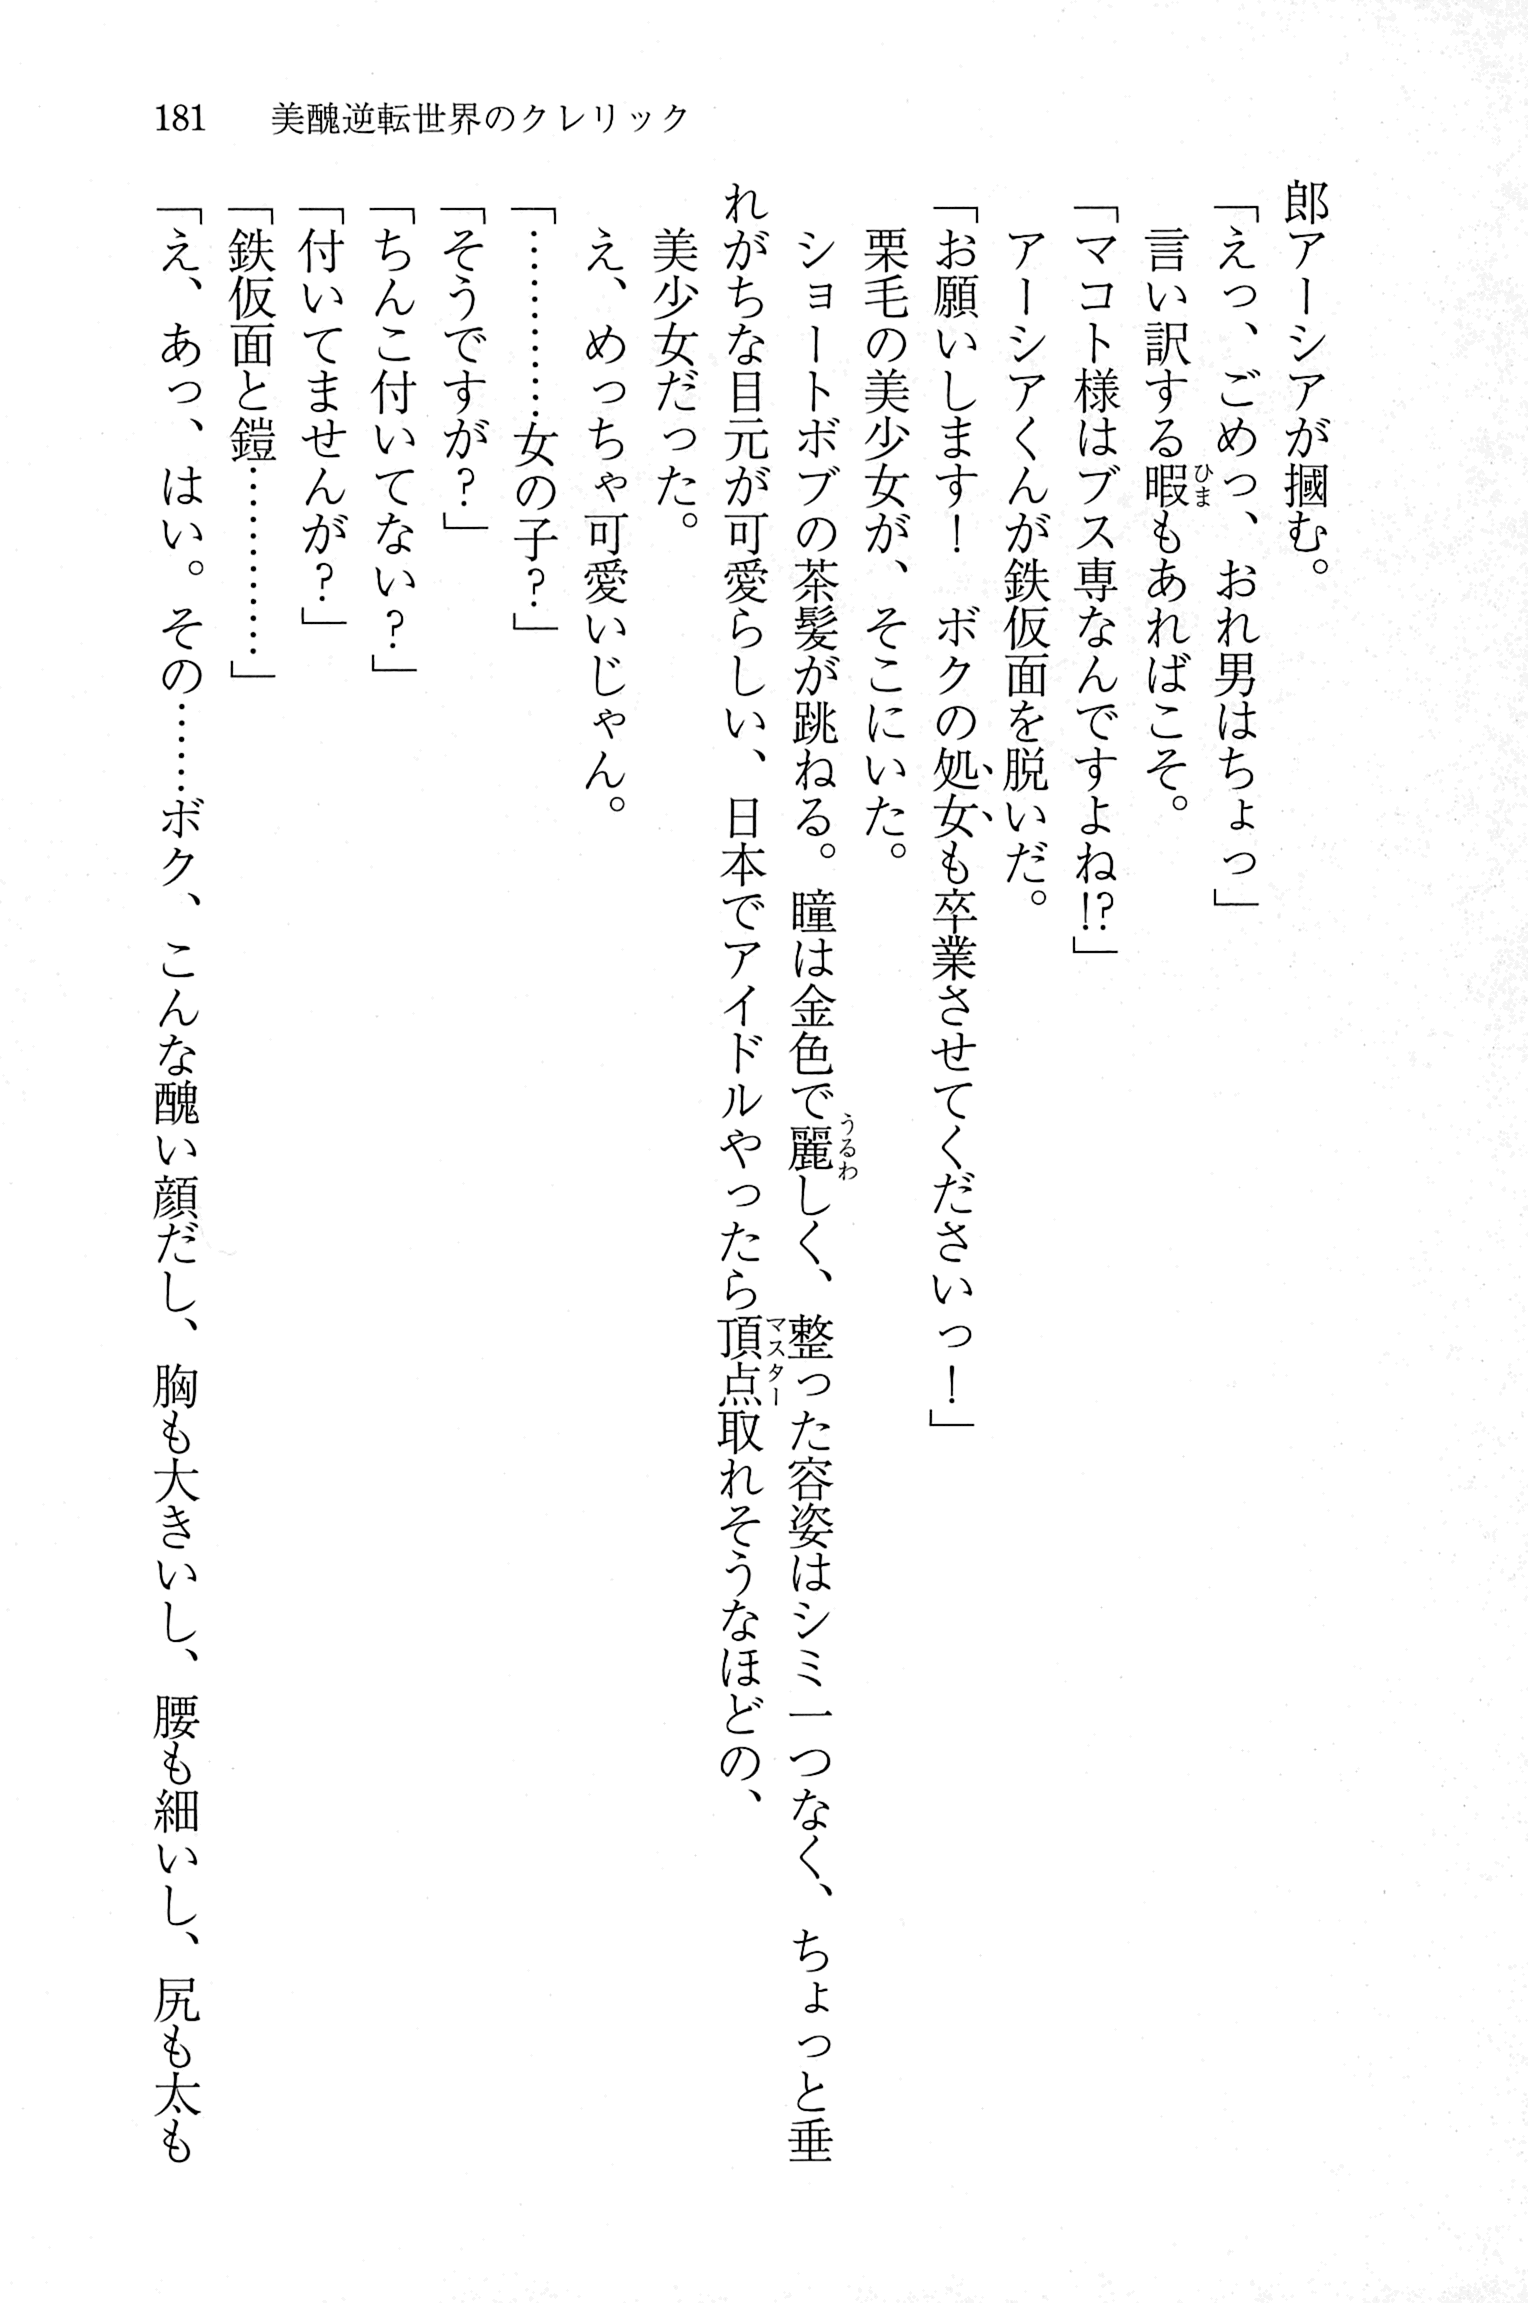 181 美醜逆転世界のクレリック
郎アーシアが摑む。
「えっ、ごめっ、おれ男はちょっ」
言い訳する暇もあればこそ。
「マコト様はブス専なんですよね!?」
アーシアくんが鉄仮面を脱いだ。
「お願いします！　ボクの処女も卒業させてくださいっ！」
栗毛の美少女が、そこにいた。
ショートボブの茶髪が跳ねる。瞳は金色で麗しく、整った容姿はシミ一つなく、ちょっと垂
れがちな目元が可愛らしい、日本でアイドルやったら頂点取れそうなほどの、
美少女だった。
え、めっちゃ可愛いじゃん。
「…………女の子？」
「そうですが？」
「ちんこ付いてない？」
「付いてませんが？」
「鉄仮面と鎧…………」
「え、あっ、はい。その……ボク、こんな醜い顔だし、胸も大きいし、腰も細いし、尻も太も
ひま
うるわ
マスター